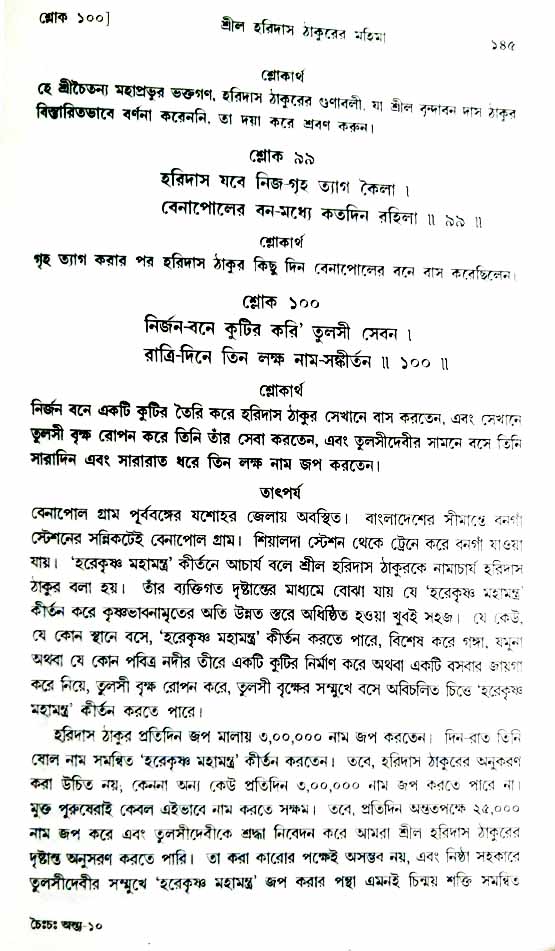 শ্লোক ১০০]
শ্রীল হরিদাস ঠাকুরের মহিমা
১৪৫
শ্লোকার্থ
হে শ্রীচৈতন্য মহাপ্রভুর ভক্তগণ, হরিদাস ঠাকুরের গুণাবলী, যা শ্রীল বৃন্দাবন দাস ঠাকুর
বিস্তারিতভাবে বর্ণনা করেননি, তা দয়া করে শ্রবণ করুন।
শ্লোক ৯৯
হরিদাস যবে নিজ-গৃহ ত্যাগ কৈলা ।
বেনাপোলের বন-মধ্যে কতদিন রহিলা ॥ ৯৯ ॥
শ্লোকার্থ
গৃহ ত্যাগ করার পর হরিদাস ঠাকুর কিছু দিন বেনাপোলের বনে বাস করেছিলেন।
শ্লোক ১০০
নির্জন-বনে কুটির করি' তুলসী সেবন ।
রাত্রি-দিনে তিন লক্ষ নাম-সঙ্কীর্তন ॥ ১০০ ॥
শ্লোকার্থ
নির্জন বনে একটি কুটির তৈরি করে হরিদাস ঠাকুর সেখানে বাস করতেন, এবং সেখানে
তুলসী বৃক্ষ রোপন করে তিনি তাঁর সেবা করতেন, এবং তুলসীদেবীর সামনে বসে তিনি
সারাদিন এবং সারারাত ধরে তিন লক্ষ নাম জপ করতেন।
তাৎপর্য
বেনাপোল গ্রাম পূর্ববঙ্গের যশোহর জেলায় অবস্থিত। বাংলাদেশের সীমান্তে বনগাঁ
স্টেশনের সন্নিকটেই বেনাপোল গ্রাম। শিয়ালদা স্টেশন থেকে ট্রেনে করে বনগাঁ যাওয়া
যায়। 'হরেকৃষ্ণ মহামন্ত্র' কীর্তনে আচার্য বলে শ্রীল হরিদাস ঠাকুরকে নামাচার্য হরিদাস
ঠাকুর বলা হয়। তাঁর ব্যক্তিগত দৃষ্টান্তের মাধ্যমে বোঝা যায় যে 'হরেকৃষ্ণ মহামন্ত্র'
কীর্তন করে কৃষ্ণভাবনামৃতের অতি উন্নত স্তরে অধিষ্ঠিত হওয়া খুবই সহজ। যে কেউ,
যে কোন স্থানে বসে, 'হরেকৃষ্ণ মহামন্ত্র' কীর্তন করতে পারে, বিশেষ করে গঙ্গা, যমুনা
অথবা যে কোন পবিত্র নদীর তীরে একটি কুটির নির্মাণ করে অথবা একটি বসবার জায়গা
করে নিয়ে, তুলসী বৃক্ষ রোপন করে, তুলসী বৃক্ষের সম্মুখে বসে অবিচলিত চিত্তে 'হরেকৃষ্ণ
মহামন্ত্র' কীর্তন করতে পারে।
হরিদাস ঠাকুর প্রতিদিন জপ মালায় ৩,০০,০০০ নাম জপ করতেন। দিন-রাত তিনি
ষোল নাম সমন্বিত 'হরেকৃষ্ণ মহামন্ত্র' কীর্তন করতেন। তবে, হরিদাস ঠাকুরের অনুকরণ
করা উচিত নয়, কেননা অন্য কেউ প্রতিদিন ৩,০০,০০০ নাম জপ করতে পারে না।
মুক্ত পুরুষেরাই কেবল এইভাবে নাম করতে সক্ষম। তবে, প্রতিদিন অন্ততপক্ষে ২৫,০০০
নাম জপ করে এবং তুলসীদেবীকে শ্রদ্ধা নিবেদন করে আমরা শ্রীল হরিদাস ঠাকুরের
দৃষ্টান্ত অনুসরণ করতে পারি। তা করা কারোর পক্ষেই অসম্ভব নয়, এবং নিষ্ঠা সহকারে
তুলসীদেবীর সম্মুখে 'হরেকৃষ্ণ মহামন্ত্র' জপ করার পন্থা এমনই চিন্ময় শক্তি সমন্বিত
চৈঃচঃ অন্ত্য-১০